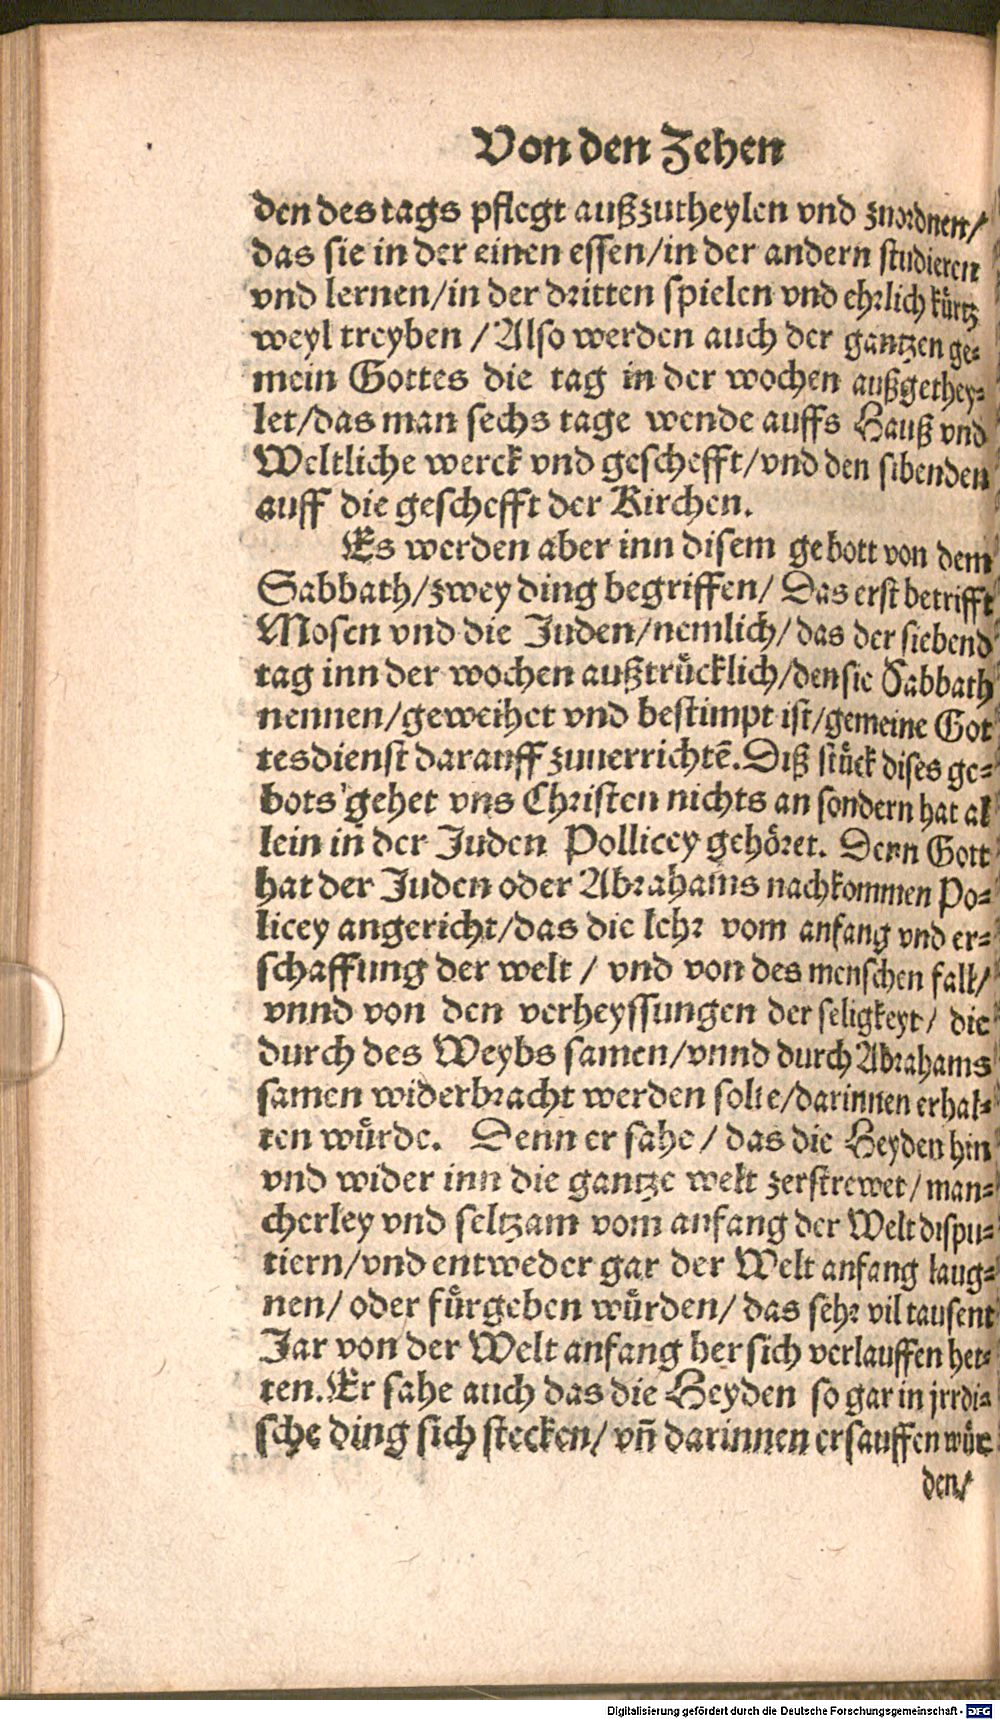 Von den Zehen
den des tags pflegt außzutheylen vnd zuordnen/
das sie in der einen essen/in der andern studieren
vnd lernen/in der dritten spielen vnd ehrlich kürtz
weyl treyben /Also werden auch der gantzen ge⸗
mein Gottes die tag in der wochen außgethey⸗
let/das man sechs tage wende auffs Hauß vnd
Weltliche werck vnd geschefft/vnd den sibenden
auff die geschefft der Kirchen.
Es werden aber inn disem gebott von dem
Sabbath/zwey ding begriffen/ Das erst betrifft
Mosen vnd die Juden/nemlich/das der siebend
tag inn der wochen außtrücklich/den sie Sabbath
nennen/geweihet vnd bestimpt ist/gemeine Got
tesdienst darauff zuuerrichtẽ. Diß stück dises ge⸗
bots gehet vns Christen nichts an sondern hat al
lein in der Juden Pollicey gehöret. Denn Gott
hat der Juden oder Abrahams nachkommen Po⸗
licey angericht/das die lehr vom anfang vnd er⸗
schaffung der welt / vnd von des menschen fall/
vnnd von den verheyssungen der seligkeyt/ die
durch des Weybs samen/vnnd durch Abrahams
samen widerbracht werden solte/darinnen erhal⸗
ten würde. Denn er sahe / das die Heyden hin
vnd wider inn die gantze welt zerstrewet/ man⸗
cherley vnd seltzam vom anfang der Welt dispu⸗
tiern/vnd entweder gar der Welt anfang laug⸗
nen/ oder fürgeben würden/ das sehr vil tausent
Jar von der Welt anfang her sich verlauffen het⸗
ten. Er sahe auch das die Heyden so gar in jrrdi⸗
sche ding sich stecken/ vñ darinnen ersauffen wür
den/
Digitalisierung gefördert durch die Deutsche Forschungsgemeinschaft - DFG